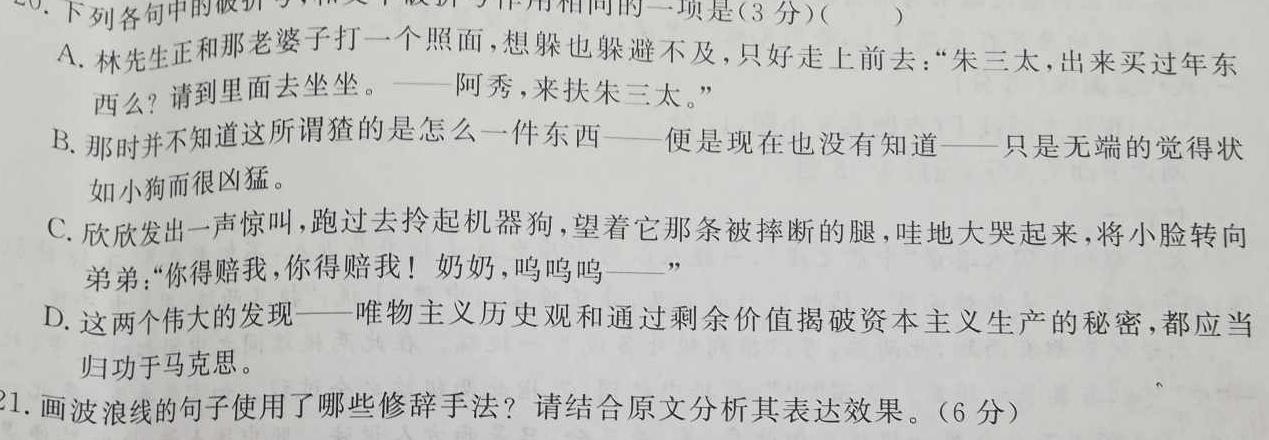 20. 下列各句中的破折号,和文中破折号作用相同的一项是(3分)(　　)
A. 林先生正和那老婆子打一个照面,想躲也躲避不及,只好走上前去:“朱三太,出来买过年东
西么? 请到里面去坐坐。——阿秀,来扶朱三太。”
B. 那时并不知道这所谓猹的是怎么一件东西——便是现在也没有知道——只是无端的觉得状
如小狗而很凶猛。
C. 欣欣发出一声惊叫,跑过去拎起机器狗,望着它那条被摔断的腿,哇地大哭起来,将小脸转向
弟弟:“你得赔我,你得赔我! 奶奶,呜呜呜——”
D. 这两个伟大的发现——唯物主义历史观和通过剩余价值揭破资本主义生产的秘密,都应当
归功于马克思。
21. 画波浪线的句子使用了哪些修辞手法? 请结合原文分析其表达效果。(6分)